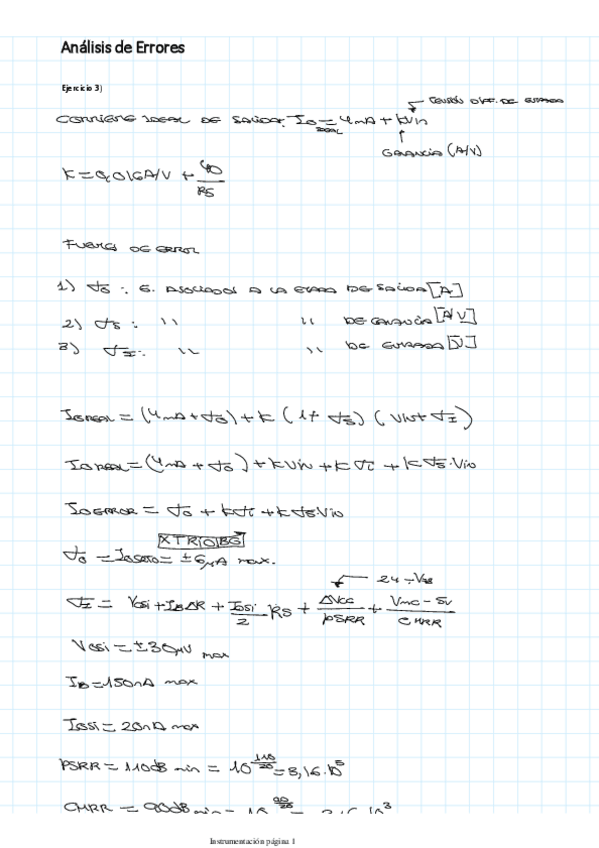 Análisis de Errores
Ejercicio 3)
TENSIÓN DIF. DE ENTRADA
CORRIENTE IDEAL DE SALIDA: Io = 4mA + kVin
IDEAL
GANANCIA (A/V)
K = 0,016A/V + 40/RS
FUENTES DE ERROR
1) σo : E. ASOCIADOS A LA ETAPA DE SALIDA [A]
2) σs : " " DE GANANCIA [A/V]
3) σI : " " DE ENTRADA [V]
Io REAL = (4mA + σo) + k (1 + σs) (Vin + σI)
Io REAL = (4mA + σo) + kVin + kσi + kσs·Vin
Io ERROR = σo + kσi + kσs·Vin
XTR101BG
σo = Ioseto = ±6μA max.
24 - Vss
σI = Vosi + IBΔR + Iosi/2 RS + ΔVcc/PSRR + Vmc - 5V/CMRR
Vosi = ±30μV max
IB = 150nA max
Iosi = 20nA max
PSRR = 110dB min = 10^110/20 = 3,16·10^5
CMRR = 90dB min = 10^90/20
Instrumentación página 1